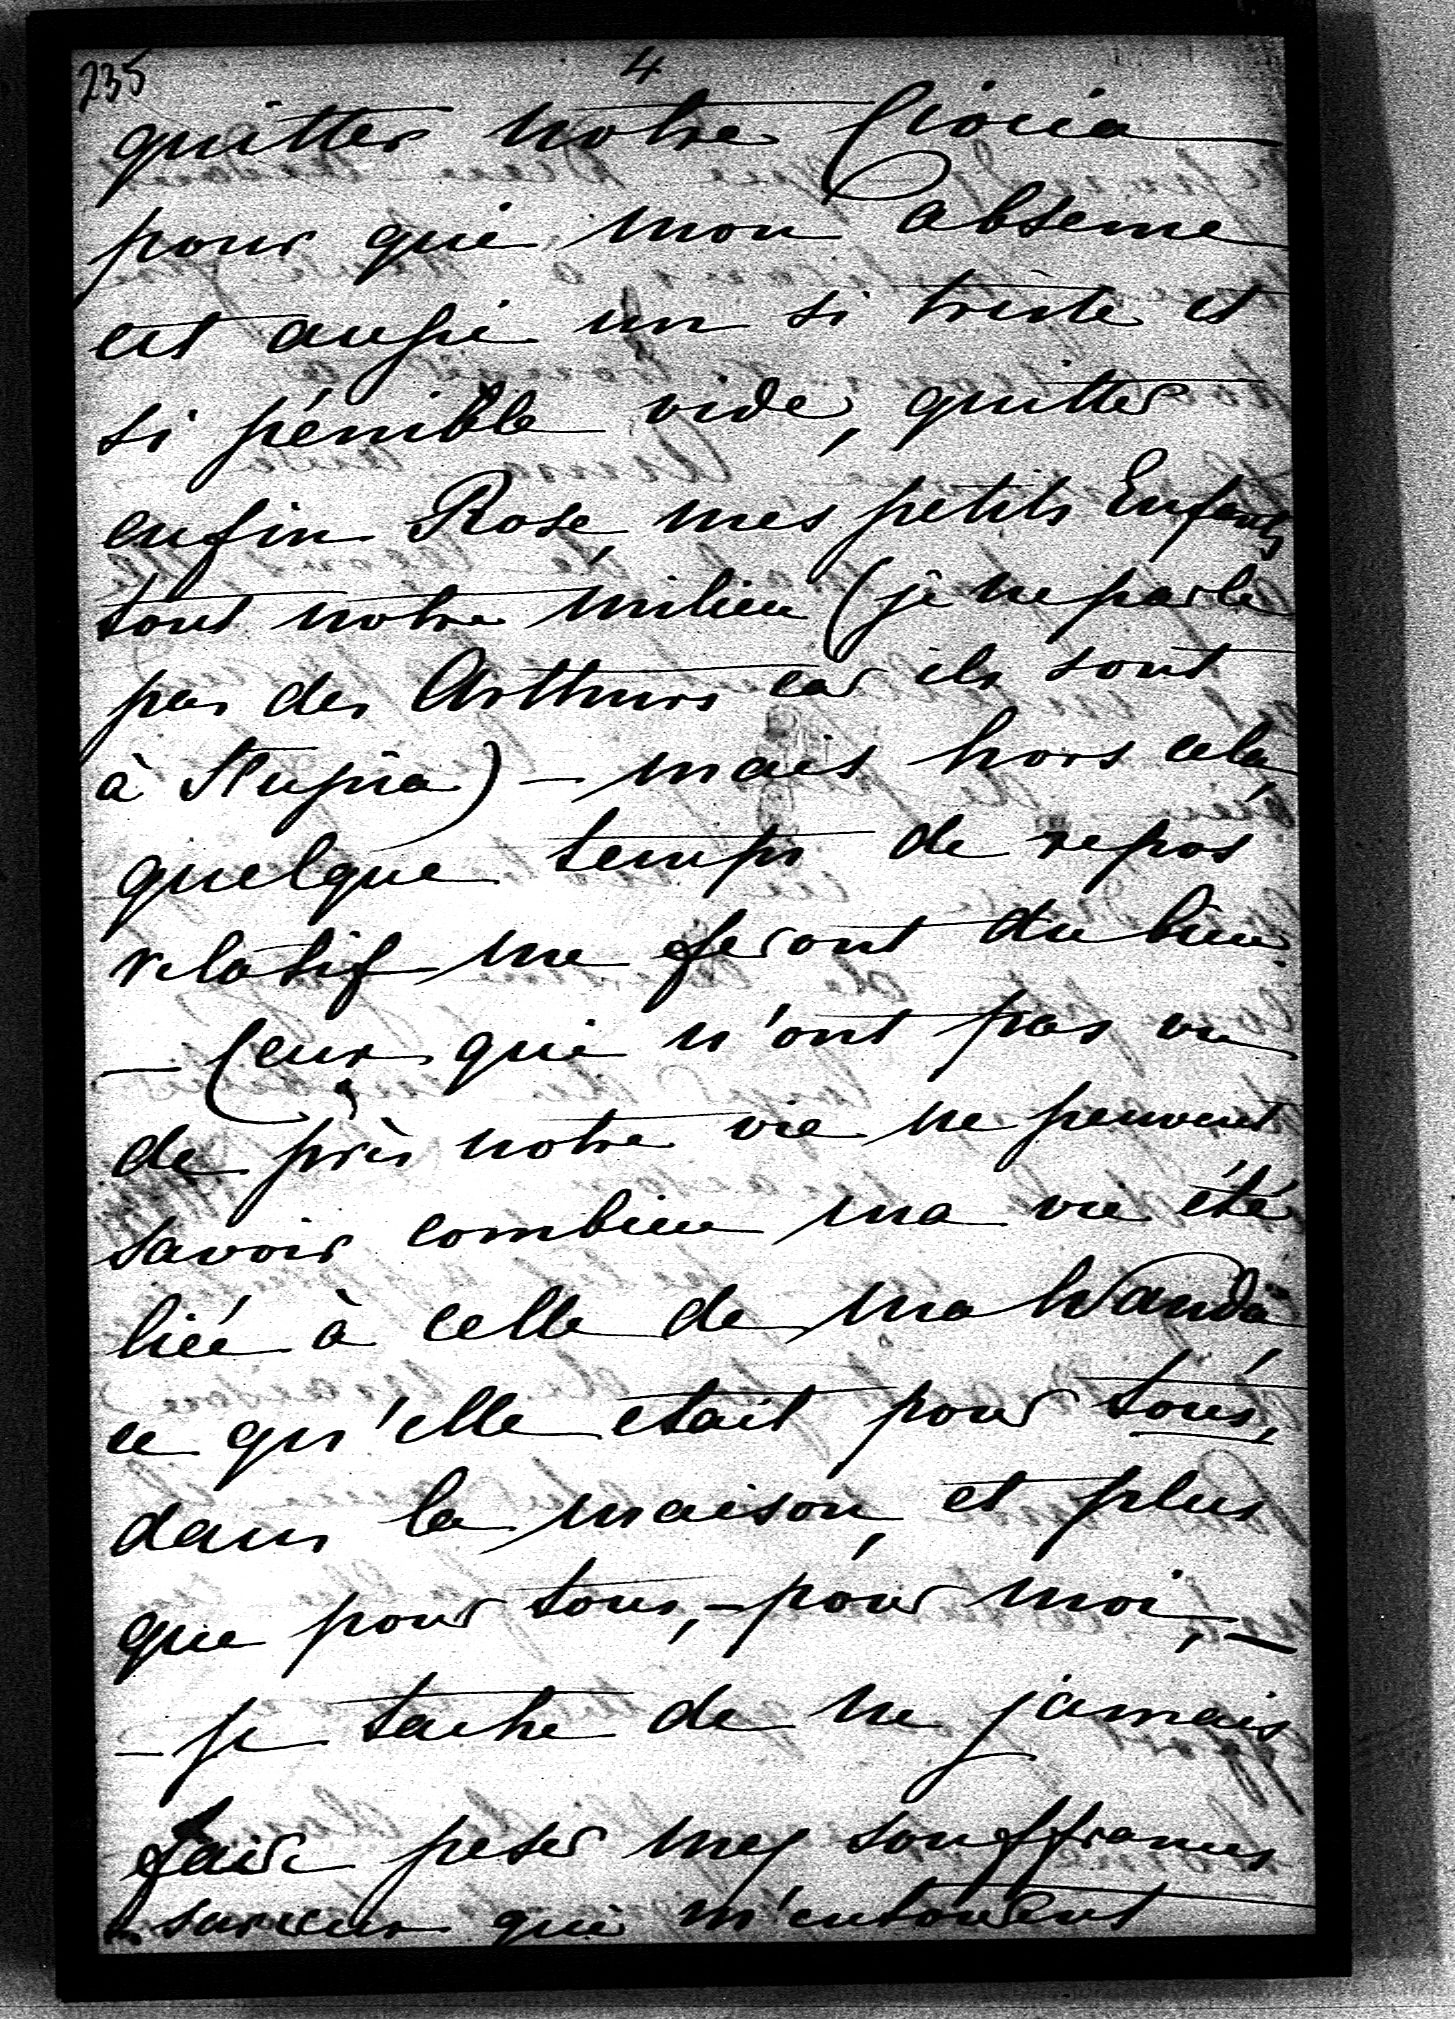 235
4
quitter notre Ciocia
pour qui mon absence
est aussi un si triste et
si pénible vide, quitter
enfin Rose, mes petits Enfants
tout notre milieu (je ne parle
pas des Arthurs car ils sont
à Stupia) – mais hors cela,
quelque temps de repos
relatif me feront du bien.
– Ceux qui n'ont pas vu
de près notre vie ne peuvent
savoir combien ma vie été
liée à celle de ma Wanda
ce qu'elle était pour tous,
dans la maison, et plus
que pour tous, – pour moi, –
– je tache de ne jamais
faire peser mes souffrances
sur ceux qui m'entourent